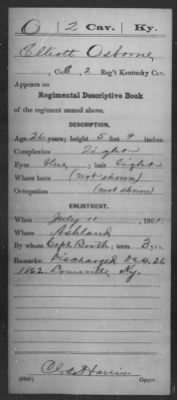 O 2 Cav. Ky.
Elliott Osborne
Co. B, 2 Reg't Kentucky Cav.
Appears on
Regimental Descriptive Book
of the regiment named above.
DESCRIPTION.
Age 26 years; height 5 feet 9 inches.
Complexion Light
Eyes Blue; hair Light
Where born (not shown)
Occupation (not shown)
ENLISTMENT.
When July 11, 1861.
Where Ashland
By whom Capt Booth; term 3 yrs.
Remarks: Discharged 26
1862. Ky.
Copyist.